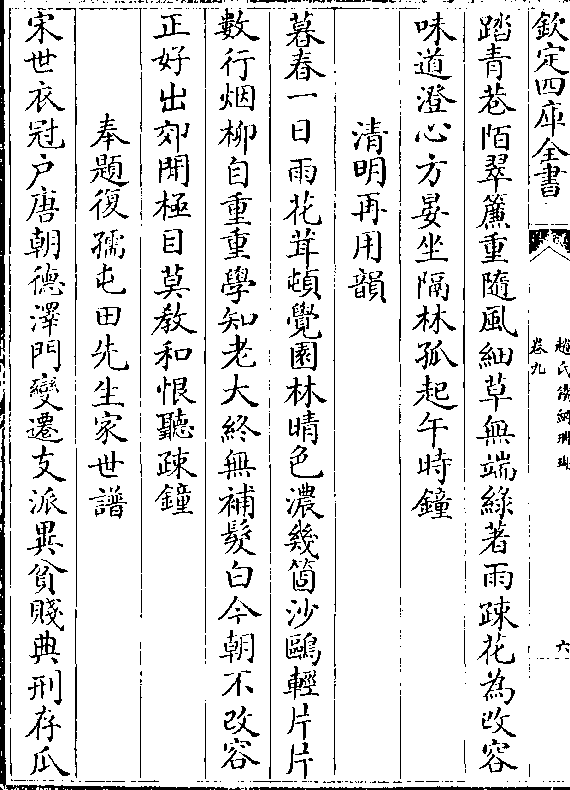 欽定四庫全書
趙氏鐵網珊瑚
卷九
六
踏青巷陌翠簾重隨風細草無端綠著雨疎花為改容
味道澄心方晏坐隔林孤起午時鐘
清明再用韻
暮春一日雨花茸頓覺園林晴色濃幾箇沙鷗輕片片
數行烟柳自重重學知老大終無補髮白今朝不改容
正好出郊閒極目莫教和恨聽疎鐘
奉題復孺屯田先生家世譜
宋世衣冠户唐朝德澤門變遷支派異貧賤典刑存瓜